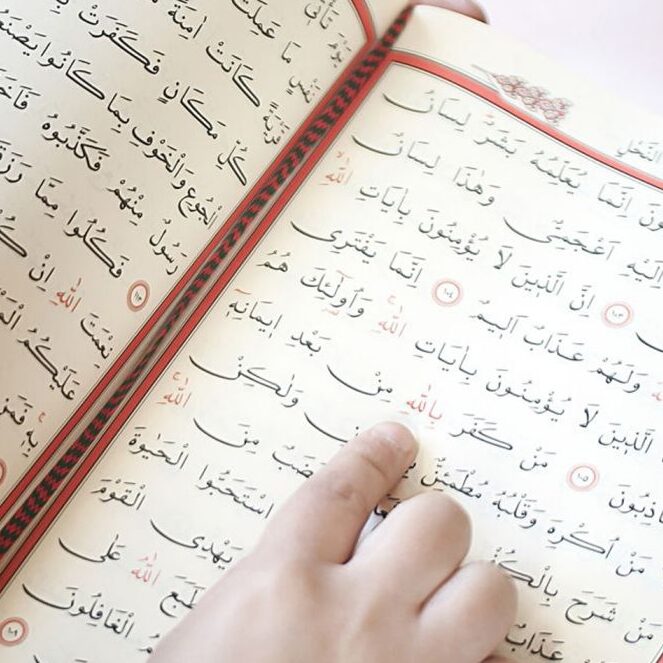 النَّحْلِ
اِنَّمَا يُعَلِّمُهُ بَشَرٌ لِسَانُ
اِلَيْهِ اَعْجَمِىٌّ وَهٰذَا لِسَانٌ
﴿١٠٣﴾ اِنَّ الَّذ۪ينَ لَا يُؤْمِنُونَ بِاٰيَاتِ اللّٰهِۙ
وَلَهُمْ عَذَابٌ اَل۪يمٌ ﴿١٠٤﴾ اِنَّمَا يَفْتَرِى
الَّذ۪ينَ لَا يُؤْمِنُونَ بِاٰيَاتِ اللّٰهِۚ وَاُو۬لٰٓئِكَ هُمُ
اذِبُونَ ﴿١٠٥﴾ مَنْ كَفَرَ بِاللّٰهِ مِنْ بَعْدِ ا۪يمَانِه۪ٓ
مَنْ اُكْرِهَ وَقَلْبُهُ مُطْمَئِنٌّ وَلٰكِنْ
مَنْ شَرَحَ بِالْكُفْ مِنَ اللّٰهِۚ
عَذَابٌ اسْتَحَبُّوا الْحَيٰوةَ
يَهْدِى الْقَوْمَ
طَبَعَ اللّٰهُ عَلٰى
الْغَافِلُونَ ﴿١٠٨﴾
يَوْمَ تَأْت۪ى
نَفْسٍ مَا عَمِلَتْ
قَرْيَةً كَانَتْ اٰمِنَةً
كُلِّ مَكَانٍ فَكَفَرَتْ
الْجُوعِ وَالْخَوْفِ بِمَا كَانُوا يَصْنَعُ
رَسُولٌ مِنْهُمْ فَكَذَّبُوهُ
﴿١١٣﴾ فَكُلُوا مِمَّا
نِعْمَتَ اللّٰهِ اِنْ
عَلَيْكُمُ
بِه۪ۚ